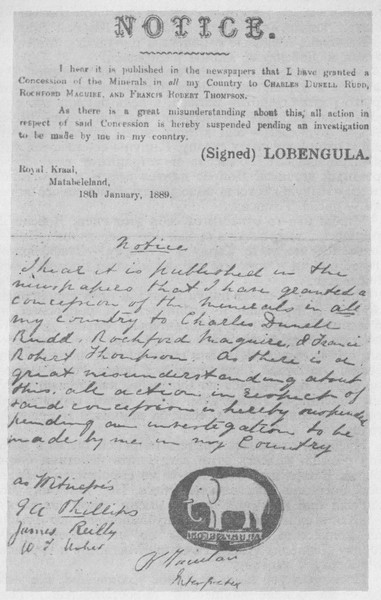 NOTICE.
I hear it is published in the newspapers that I have granted a
Concession of the Minerals in all my Country to CHARLES DUNELL RUDD,
ROCHFORD MAGUIRE, AND FRANCIS ROBERT THOMPSON.
As there is a great misunderstanding about this, all action in
respect of said Concession is hereby suspended pending an investigation
to be made by me in my country.
(Signed) LOBENGULA.
Royal Kraal,
Matabeleland,
18th January, 1889.
Notice
I hear it is published in the
newspapers that I have granted a
concession of the minerals in all
my country to Charles Dunell
Rudd, Rochford Maguire, & Francis
Robert Thompson. As there is a
great misunderstanding about
this, all action in respect of
said concession is hereby suspended
pending an investigation to be
made by me in my Country
as Witnesses
G A Phillips
James Reilly
W F Usher
Interpreter